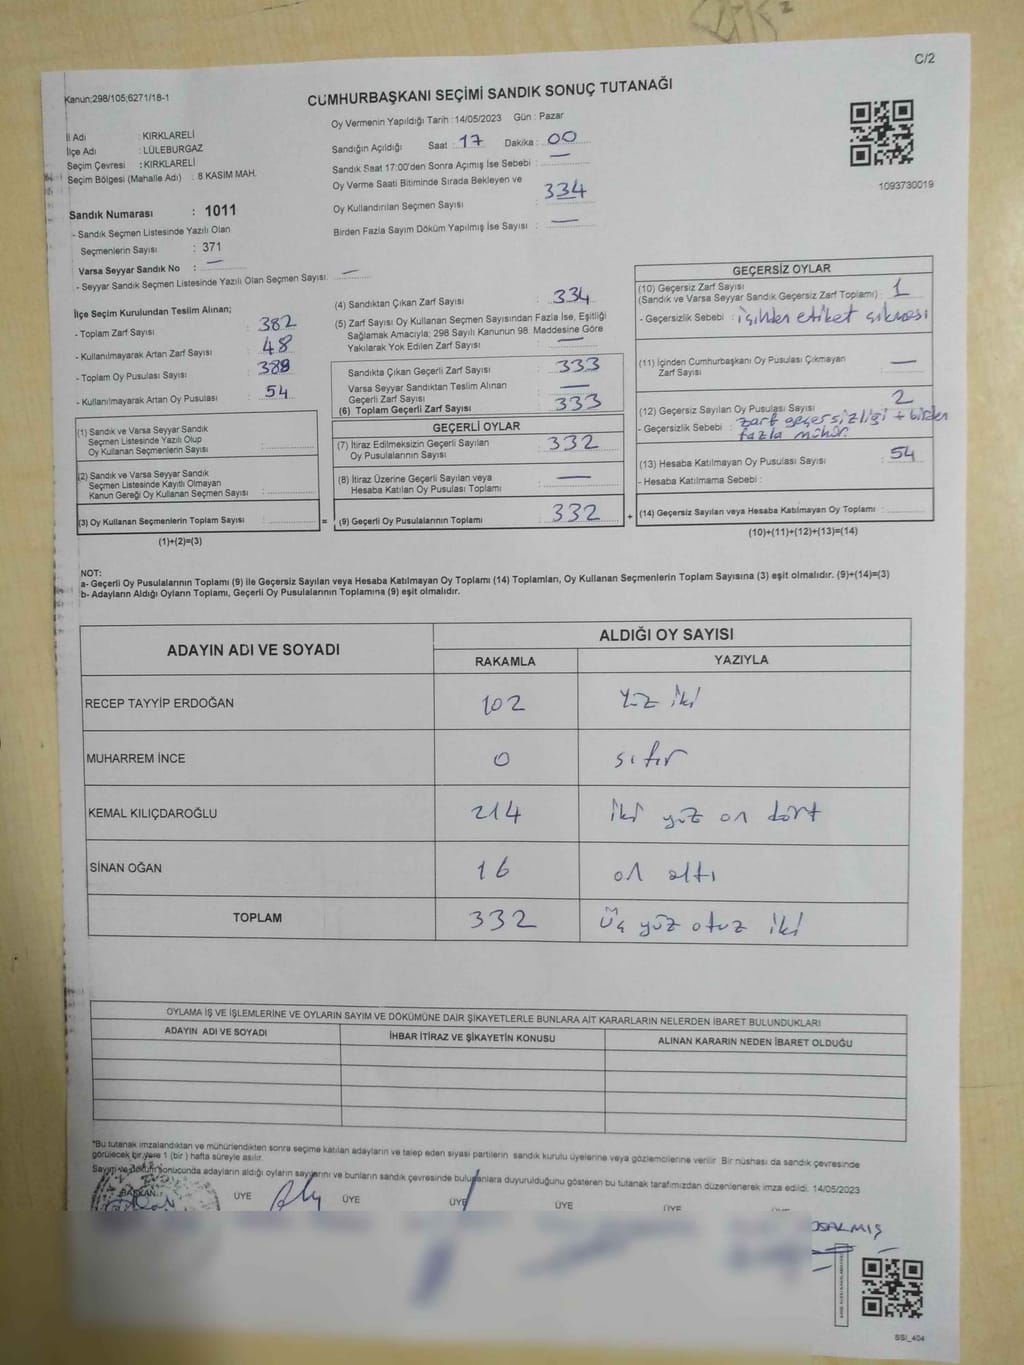 C/2
Kanun;298/105;6271/18-1
CUMHURBAŞKANI SEÇİMİ SANDIK SONUÇ TUTANAĞI
Oy Vermenin Yapıldığı Tarih : 14/05/2023 Gün : Pazar
İl Adı : KIRKLARELİ
İlçe Adı : LÜLEBURGAZ
Seçim Çevresi : KIRKLARELİ
Seçim Bölgesi (Mahalle Adı) : 8 KASIM MAH.
Sandığın Açıldığı Saat : 17 Dakika : 00
Sandık Saat 17:00'den Sonra Açımış İse Sebebi : —
Oy Verme Saati Bitiminde Sırada Bekleyen ve
Oy Kullandırılan Seçmen Sayısı : 334
Birden Fazla Sayım Döküm Yapılmış İse Sayısı : —
1093730019
Sandık Numarası : 1011
- Sandık Seçmen Listesinde Yazılı Olan
Seçmenlerin Sayısı : 371
Varsa Seyyar Sandık No : —
- Seyyar Sandık Seçmen Listesinde Yazılı Olan Seçmen Sayısı: —
İlçe Seçim Kurulundan Teslim Alınan;
- Toplam Zarf Sayısı : 382
- Kullanılmayarak Artan Zarf Sayısı : 48
- Toplam Oy Pusulası Sayısı : 388
- Kullanılmayarak Artan Oy Pusulası : 54
(1) Sandık ve Varsa Seyyar Sandık
Seçmen Listesinde Yazılı Olup
Oy Kullanan Seçmenlerin Sayısı :
(2) Sandık ve Varsa Seyyar Sandık
Seçmen Listesinde Kayıtlı Olmayan
Kanun Gereği Oy Kullanan Seçmen Sayısı :
(3) Oy Kullanan Seçmenlerin Toplam Sayısı :
(1)+(2)=(3)
(4) Sandıktan Çıkan Zarf Sayısı : 334
(5) Zarf Sayısı Oy Kullanan Seçmen Sayısından Fazla İse, Eşitliği
Sağlamak Amacıyla; 298 Sayılı Kanunun 98. Maddesine Göre
Yakılarak Yok Edilen Zarf Sayısı : —
Sandıkta Çıkan Geçerli Zarf Sayısı : 333
Varsa Seyyar Sandıktan Teslim Alınan
Geçerli Zarf Sayısı : —
(6) Toplam Geçerli Zarf Sayısı : 333
GEÇERLİ OYLAR
(7) İtiraz Edilmeksizin Geçerli Sayılan
Oy Pusulalarının Sayısı : 332
(8) İtiraz Üzerine Geçerli Sayılan veya
Hesaba Katılan Oy Pusulası Toplamı : —
= (9) Geçerli Oy Pusulalarının Toplamı : 332 +
GEÇERSİZ OYLAR
(10) Geçersiz Zarf Sayısı
(Sandık ve Varsa Seyyar Sandık Geçersiz Zarf Toplamı) : 1
- Geçersizlik Sebebi : içinden etiket çıkması
(11) İçinden Cumhurbaşkanı Oy Pusulası Çıkmayan
Zarf Sayısı : —
(12) Geçersiz Sayılan Oy Pusulası Sayısı : 2
- Geçersizlik Sebebi : zarf geçersizliği + birden
fazla mühür.
(13) Hesaba Katılmayan Oy Pusulası Sayısı : 54
- Hesaba Katılmama Sebebi :
(14) Geçersiz Sayılan veya Hesaba Katılmayan Oy Toplamı :
(10)+(11)+(12)+(13)=(14)
NOT:
a- Geçerli Oy Pusulalarının Toplamı (9) ile Geçersiz Sayılan veya Hesaba Katılmayan Oy Toplamı (14) Toplamları, Oy Kullanan Seçmenlerin Toplam Sayısına (3) eşit olmalıdır. (9)+(14)=(3)
b- Adayların Aldığı Oyların Toplamı, Geçerli Oy Pusulalarının Toplamına (9) eşit olmalıdır.
ADAYIN ADI VE SOYADI ALDIĞI OY SAYISI
RAKAMLA YAZIYLA
RECEP TAYYİP ERDOĞAN 102 Yüz iki
MUHARREM İNCE 0 sıfır
KEMAL KILIÇDAROĞLU 214 iki yüz on dört
SİNAN OĞAN 16 on altı
TOPLAM 332 üç yüz otuz iki
OYLAMA İŞ VE İŞLEMLERİNE VE OYLARIN SAYIM VE DÖKÜMÜNE DAİR ŞİKAYETLERLE BUNLARA AİT KARARLARIN NELERDEN İBARET BULUNDUKLARI
ADAYIN ADI VE SOYADI İHBAR İTİRAZ VE ŞİKAYETİN KONUSU ALINAN KARARIN NEDEN İBARET OLDUĞU
*Bu tutanak imzalandıktan ve mühürlendikten sonra seçime katılan adayların ve talep eden siyasi partilerin sandık kurulu üyelerine veya gözlemcilerine verilir. Bir nüshası da sandık çevresinde
görülecek bir yere 1 (bir) hafta süreyle asılır.
Sayım ve döküm sonucunda adayların aldığı oyların sayılarını ve bunların sandık çevresinde bulunanlara duyurulduğunu gösteren bu tutanak tarafımızdan düzenlenerek imza edildi. 14/05/2023
BAŞKAN ÜYE ÜYE ÜYE ÜYE ÜYE
SSI_404